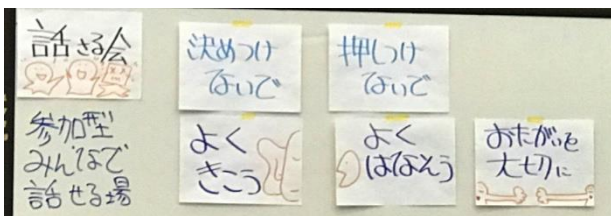 話さる会
参加型
みんなで
話せる場
決めつけ
ないで
押しつけ
ないで
よく
きこう
よく
はなそう
おたがいを
大切に